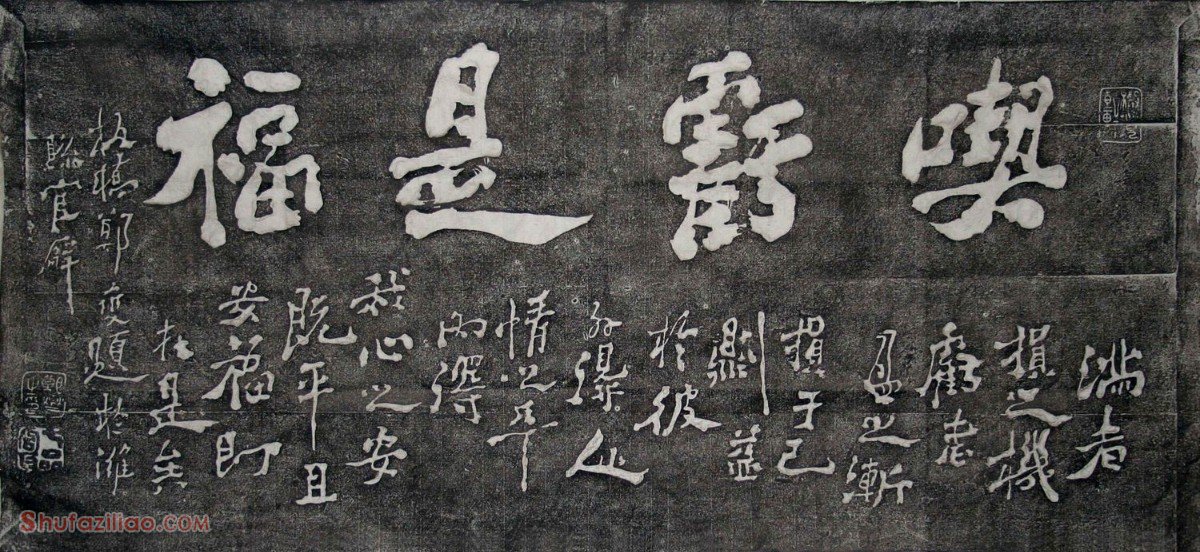 喫虧是福
滿者
損之機
虧者
盈之漸
損于己
則益
於彼
外得人
情之平
內得
我心之安
既平且
安福即
在是矣
板橋鄭燮題於濰
縣官廨
SHUFAZILIAO.COM